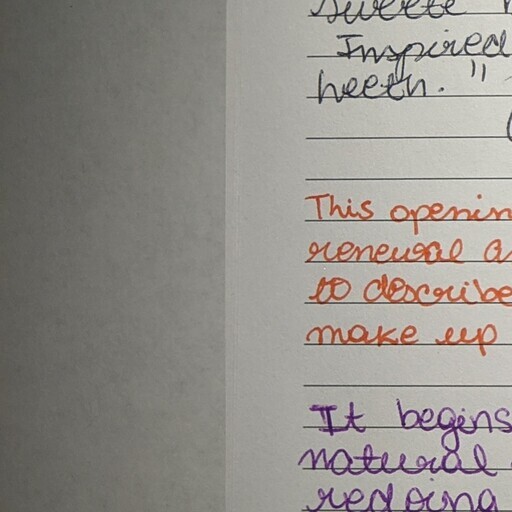 sweete
Inspired
heeth."
This openin
renewal a
to describe
make up
It begins
natural
redoing